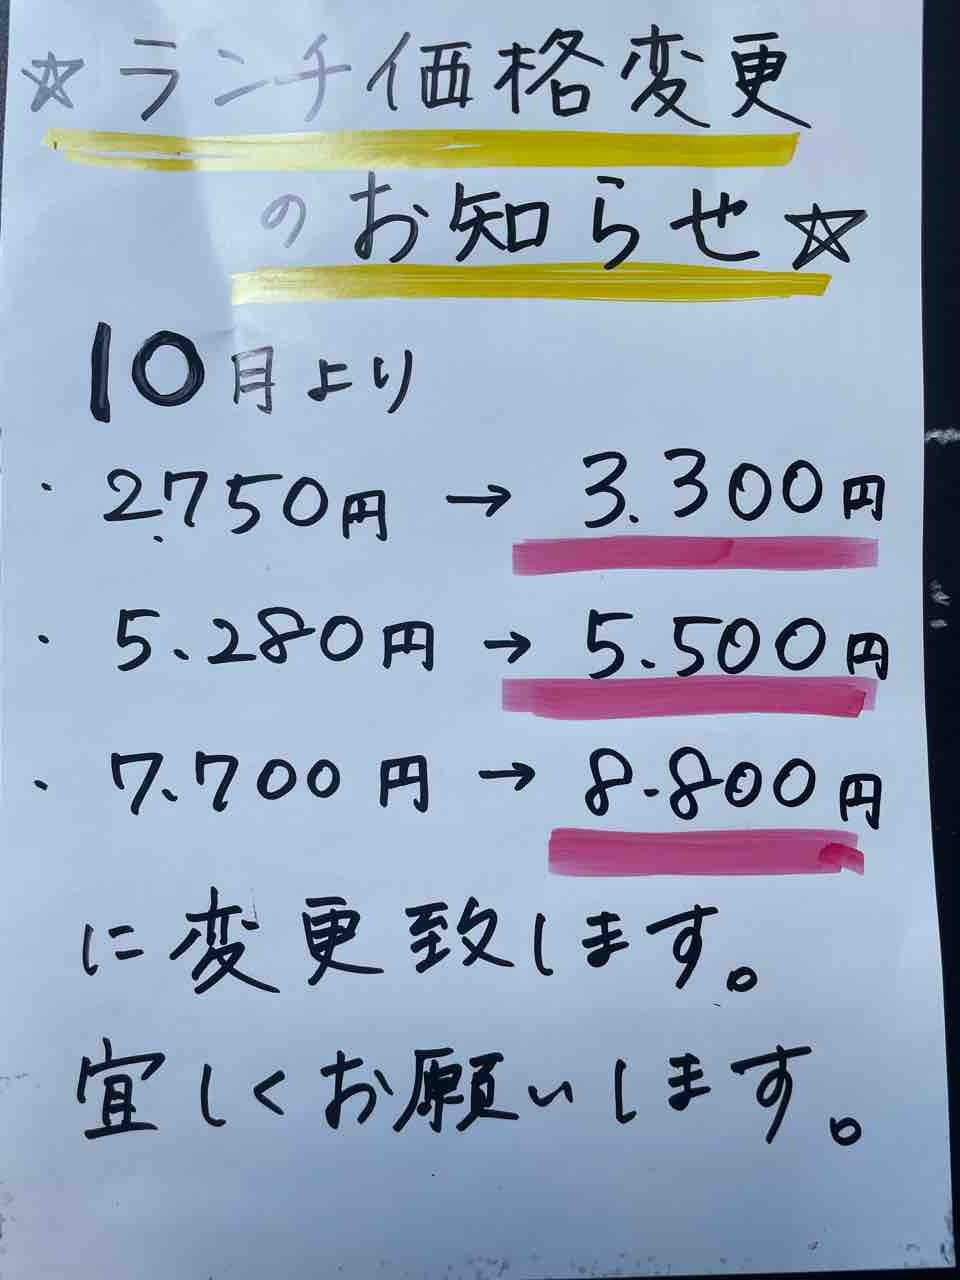 ☆ランチ価格変更
のお知らせ☆
10月より
・2.750円→3.300円
・5.280円→5.500円
・7.700円→8.800円
に変更致します。
宜しくお願いします。